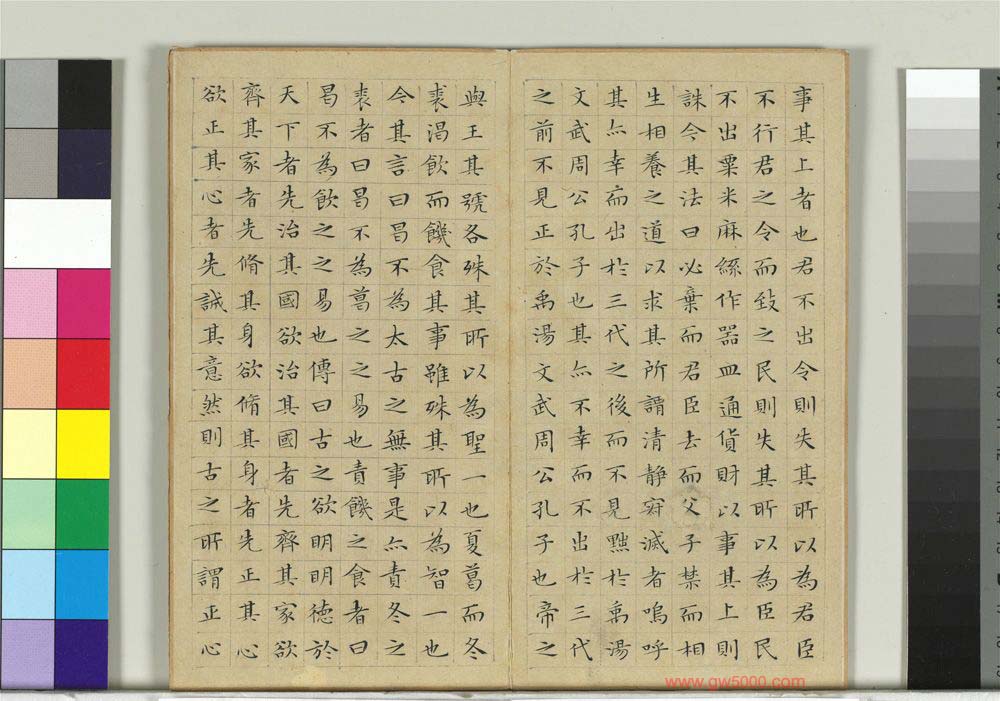 事其上者也君不出令則失其所以為君臣
不行君之令而致之民則失其所以為臣民
不出粟米麻絲作器皿通貨財以事其上則
誅今其法曰必棄而君臣去而父子禁而相
生相養之道以求其所謂清静寂滅者嗚呼
其亦幸而出於三代之後而不見黜於禹湯
文武周公孔子也其亦不幸而不出於三代
之前不見正於禹湯文武周公孔子也帝之
與王其號各殊其所以為聖一也夏葛而冬
裘渴飲而饑食其事雖殊其所以為智一也
今其言曰曷不為太古之無事是亦責冬之
裘者曰曷不為葛之之易也責饑之食者曰
曷不為飲之之易也傳曰古之欲明明德於
天下者先治其國欲治其國者先齊其家欲
齊其家者先脩其身欲脩其身者先正其心
欲正其心者先誠其意然則古之所謂正心
www.gw5000.com